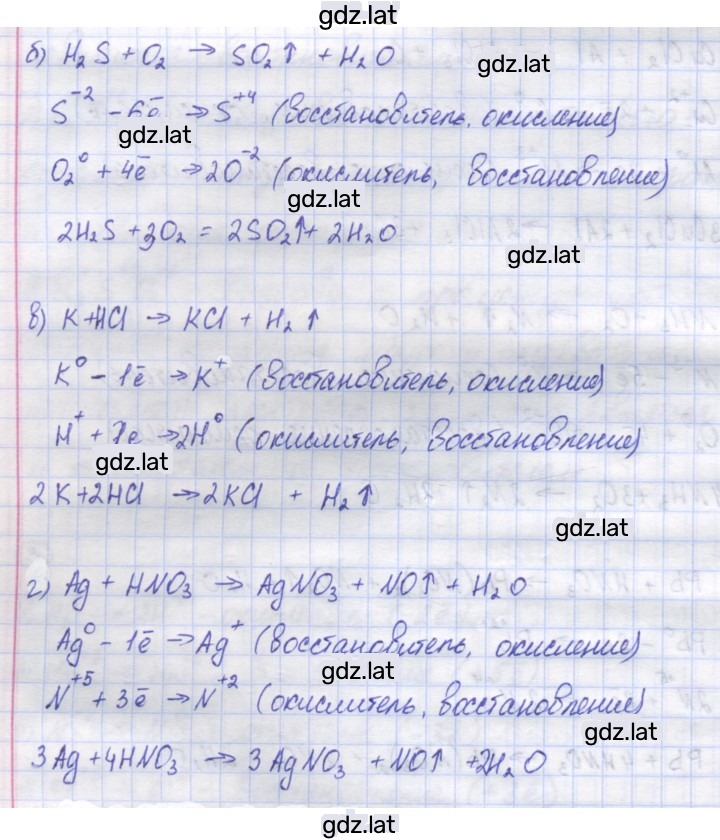 gdz.lat
б) H₂S + O₂ → SO₂↑ + H₂O
gdz.lat
S⁻² - 6ē → S⁺⁴ (восстановитель, окисление)
gdz.lat
O₂⁰ + 4ē → 2O⁻² (окислитель, восстановление)
gdz.lat
2H₂S + 3O₂ = 2SO₂↑ + 2H₂O
gdz.lat
в) K + HCl → KCl + H₂↑
K⁰ - 1ē → K⁺ (восстановитель, окисление)
H⁺ + 1ē → 2H⁰ (окислитель, восстановление)
gdz.lat
2K + 2HCl → 2KCl + H₂↑
gdz.lat
г) Ag + HNO₃ → AgNO₃ + NO↑ + H₂O
Ag⁰ - 1ē → Ag⁺ (восстановитель, окисление)
gdz.lat
N⁺⁵ + 3ē → N⁺² (окислитель, восстановление)
gdz.lat
3Ag + 4HNO₃ → 3AgNO₃ + NO↑ + 2H₂O
gdz.lat